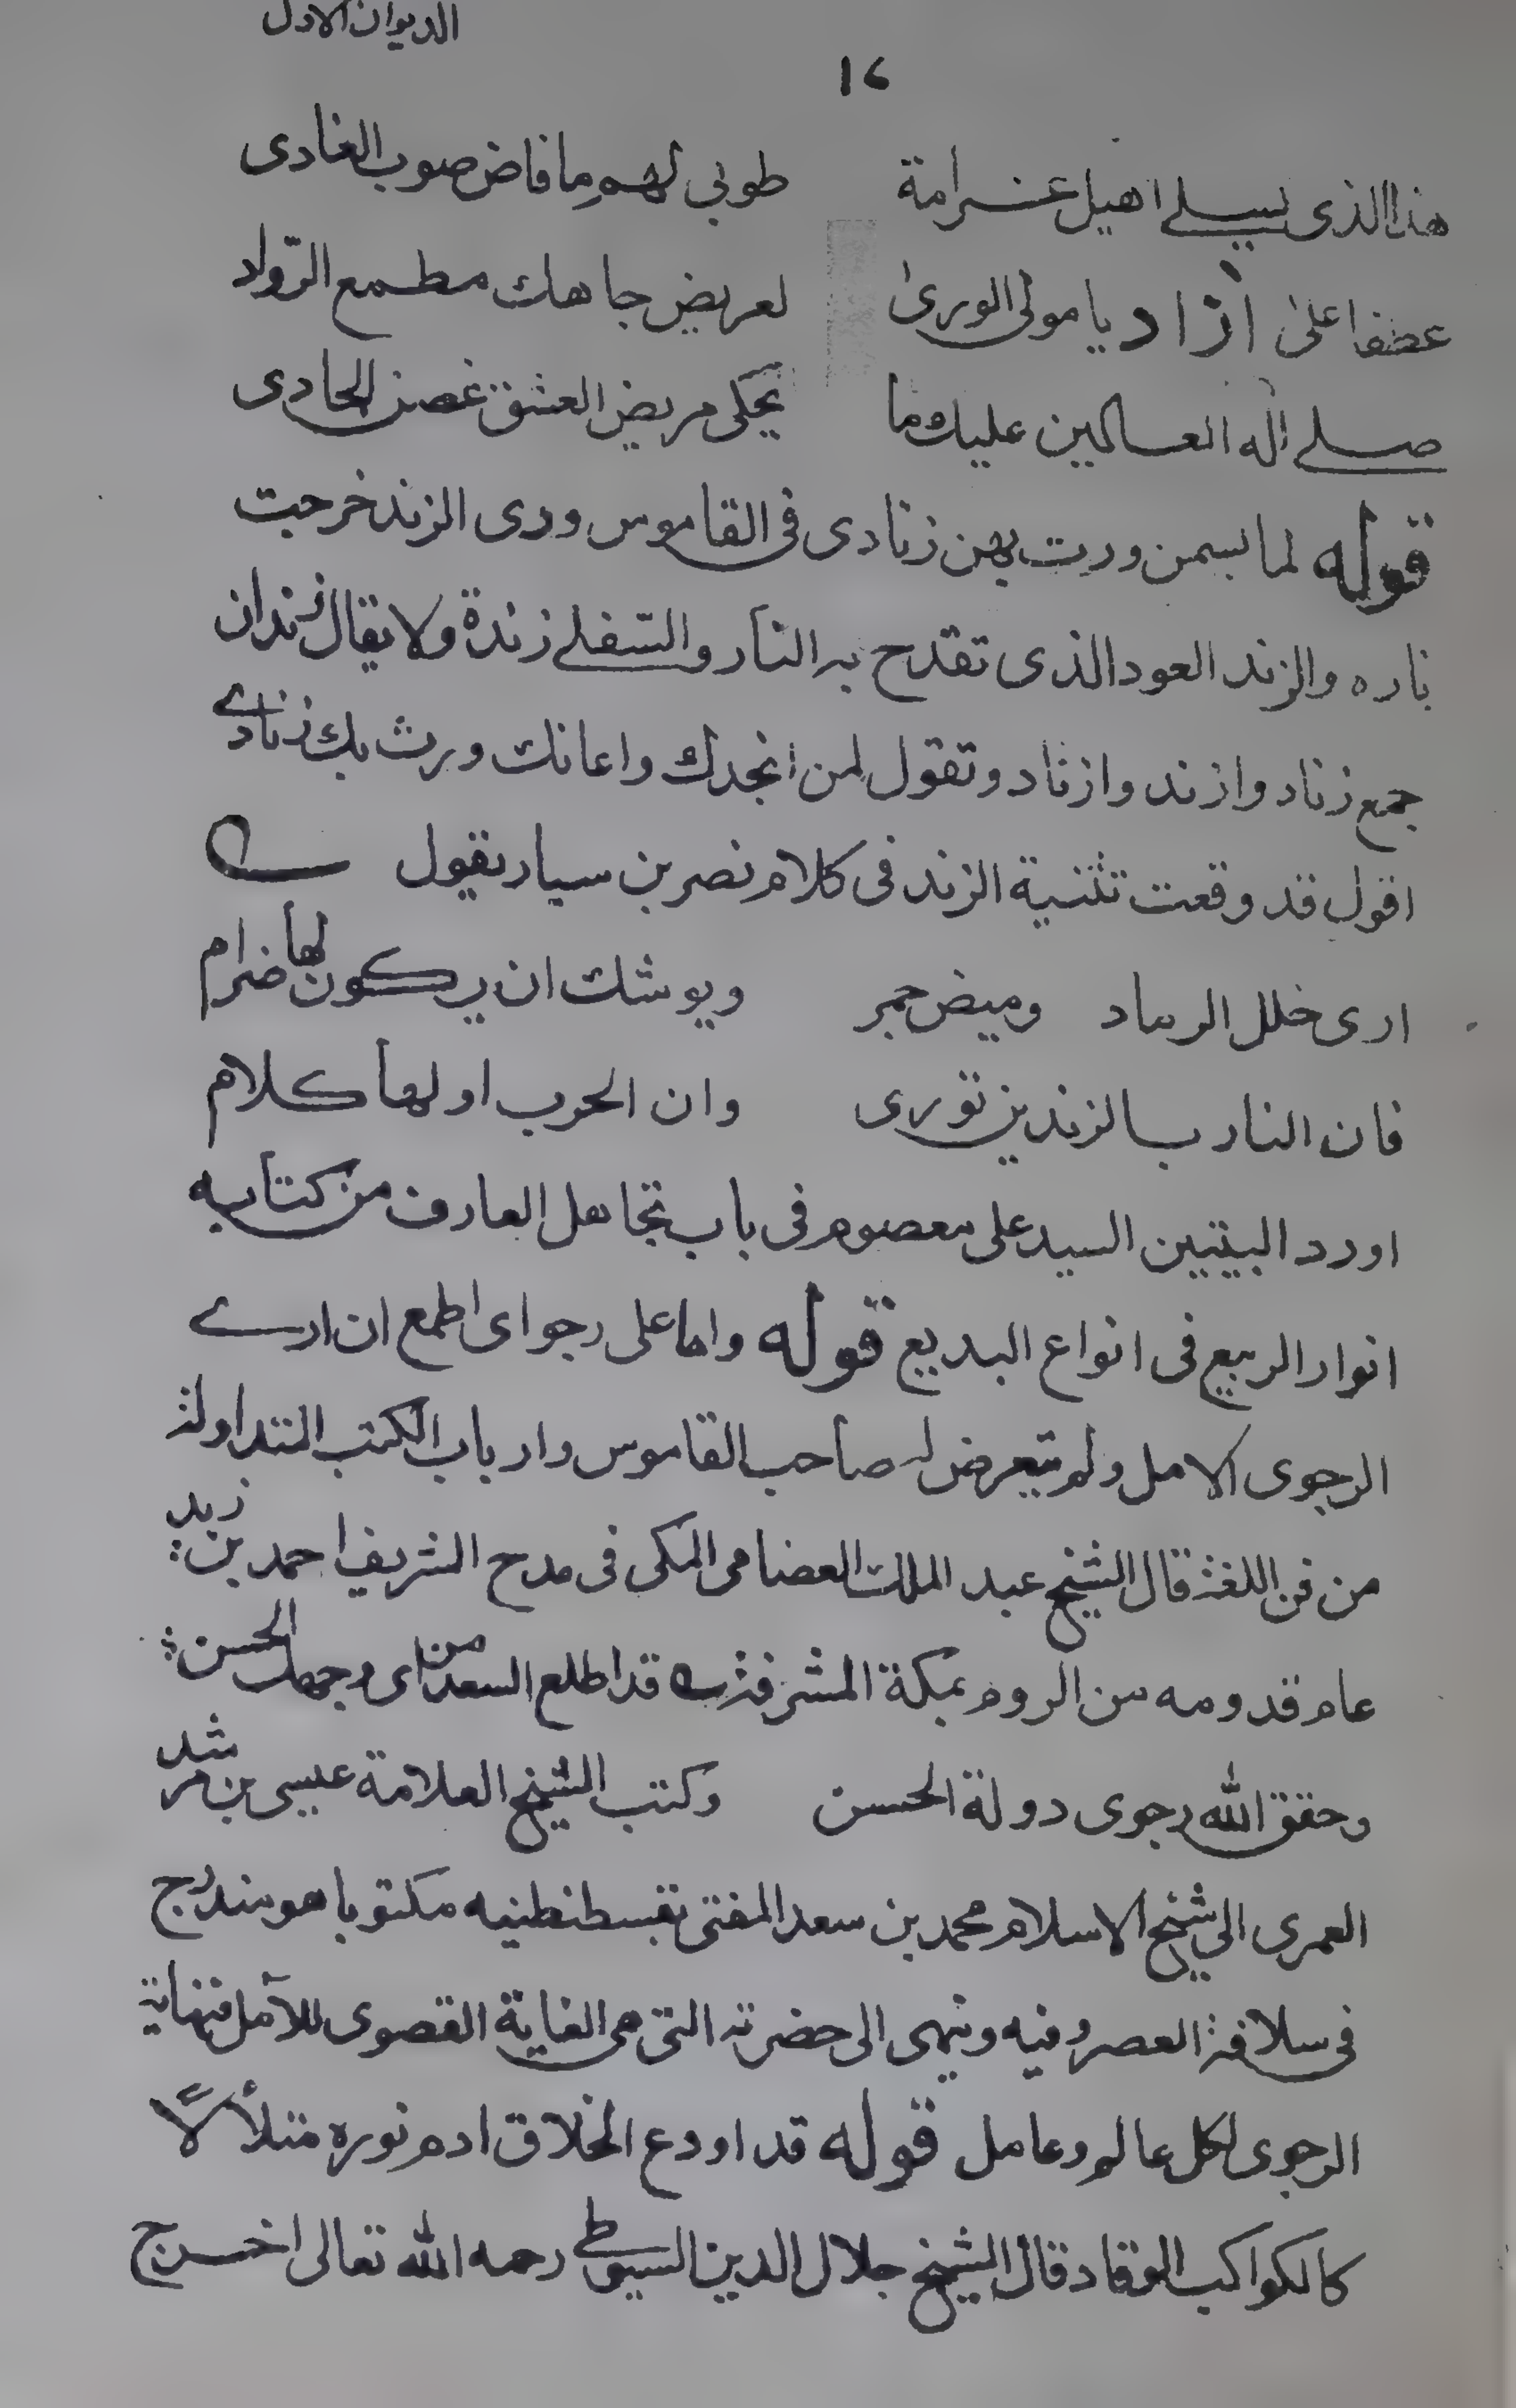 الديوان الاول
١٢
هذا الذى يسلے اهيل غرامة طوبى لهم ما فاض صوب الغادى
عطفا على آزاد يا مولى الورىٰ لعريض جاهك مطمع الرّواد
صلے اله العالمين عليك ما يحكى مريض العشق غصن الجادى
قوله لما بسمن ورت بهن زنادى فى القاموس ورى الزند خرجت
ناره والزند العود الذى تقدح به النار والسّفلے زندة ولا يقال زندان
جمع زناد وازند وازناد وتقول لمن انجدك واعانك ورت بك زنادے
اقول قد وقعت تثنية الزند فى كلام نصر بن سيار يقول
ارى خلل الرماد وميض جمر ويوشك ان يكون لها ضرام
فان النار بالزندين تورى وان الحرب اولها كلام
اورد البيتين السيد على معصوم فى باب تجاهل العارف من كتابه
انوار الربيع فى انواع البديع قوله واها على رجواى اطمع ان ارے
الرجوى الامل ولم يتعرض له صاحب القاموس وارباب الكتب المتداولة
من فن اللغة قال الشيخ عبد الملك العصامى المكى فى مدح الشريف احمد بن زيد
عام قدومه من الروم بمكة المشرفة قد اطلع السعد من مراى وجهك الحسن
وحقق الله رجوى دولة الحسن وكتب الشيخ العلامة عيسى بن مرشد
العمرى الى شيخ الاسلام محمد بن سعد المفتى بقسطنطنيه مكتوبا هو مندرج
فى سلافة العصر وفيه وينهى الى حضرته التى هى الغاية القصوى للآمل ونهاية
الرجوى لكل عالم وعامل قوله قد اودع الخلاق ادم نوره متلألأً
كالكواكب الوقاد قال الشيخ جلال الدين السيوطے رحمه الله تعالى اخرج